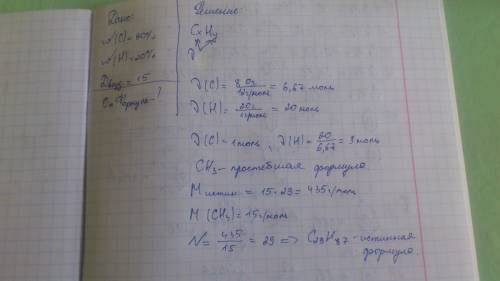 Дано:
w(C)=80%
w(H)=20%
Dвозд=15
CxHy
ν(C) = 80г / 12г/моль = 6,67 моль
ν(H) = 20г / 1г/моль = 20 моль
ν(C) = 1 моль, ν(H) = 20 / 6,67 = 3 моль
CH3 - простейшая формула
M истин = 15·29 = 435 г/моль
M (CH3) = 15 г/моль
N = 435 / 15 = 29 => C29H87 - истинная
формула